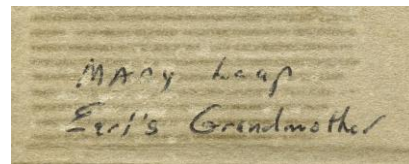 Mary Laap
Earl's Grandmother